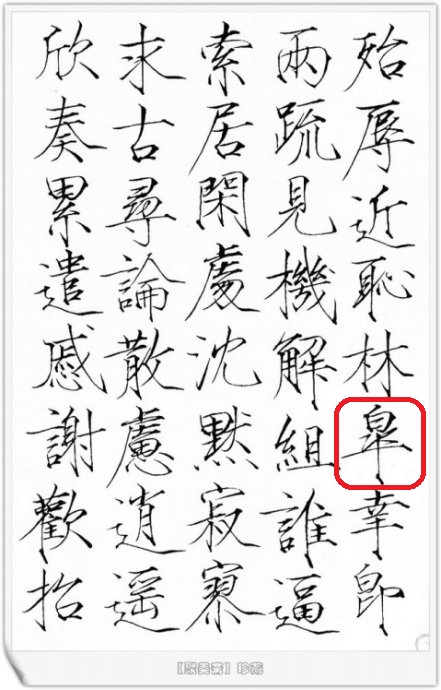 殆辱近恥林皐幸即
兩疏見機解組誰逼
索居閑處沈默寂寥
求古尋論散慮逍遥
欣奏累遣慼謝歡招